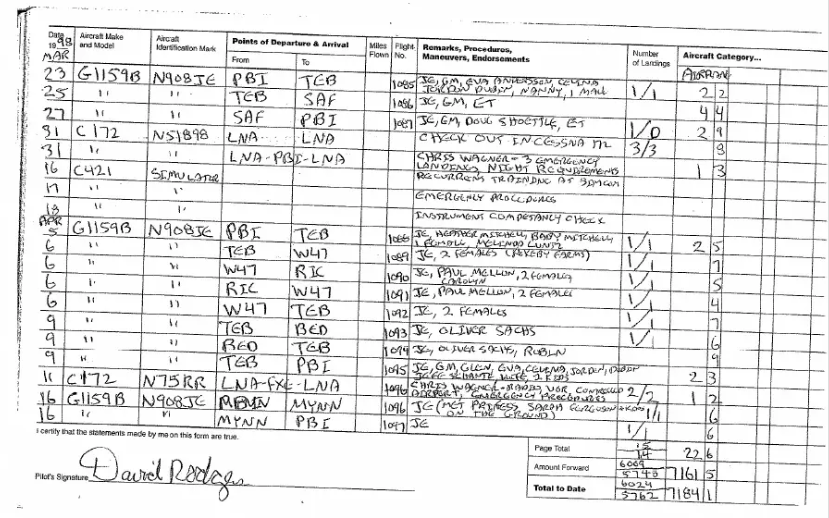 Date 1998 Aircraft Make and Model Aircraft Identification Mark Points of Departure & Arrival From To Miles Flown Flight No. Remarks, Procedures, Maneuvers, Endorsements Number of Landings Aircraft Category...
MAR AIRPLANE
23 G1159B N908JE PBI TEB 1085 JE, GM, EVA ANDERSSON, CELINA JORDON DUBIN, NANNY, 1 MALE 1/1 2 2
25 " " TEB SAF 1086 JE, GM, ET 4 4
27 " " SAF PBI 1087 JE, GM, DOUG SHOETTLE, ET 2 9
31 C172 N51898 LNA LNA CHECK OUT IN CESSNA 172 1/0 8
31 " " LNA-PBI-LNA CHRIS WAGNER - 3 EMERGENCY LANDINGS, NIGHT REQUIREMENTS 3/3 1 3
16 C421 SIMULATER RECURRENT TRAINING AT SIMCOM
17 " " EMERGENCY PROCEDURES
18 " " INSTRUMENT COMPETANCY CHECK
APR
5 G1159B N908JE PBI TEB 1088 JE, HEATHER MITCHELL, BABY MITCHELL, 1 FEMALE, MELINDA LUNTZ 1/1 2 5
6 " " TEB W47 1089 JE, 2 FEMALES 1/1 7
6 " " W47 RIC 1090 JE, PAUL MELLON, 2 FEMALES CAROLYN 5
6 " " RIC W47 1091 JE, PAUL MELLON, 2 FEMALES 1/1 4
6 " " W47 TEB 1092 JE, 2 FEMALES 7
9 " " TEB BED 1093 JE, OLIVER SACHS 1/1 6
9 " " BED TEB 1094 JE, OLIVER SACHS, ROBLN 9
9 " " TEB PBI 1095 JE, GM, GLEN, EVA, CELINA, JORDON, DUBIN 2 3
11 C172 N75RR LNA-FXE-LNA CHRIS WAGNER - RADIO, VOR, CONTROLLED AIRPORT, EMERGENCY PROCEDURES 2/2 1 2
16 G1159B N908JE MYNN 1096 JE (MET PRINCESS SARAH FERGUSON + KIDS ON THE GROUND) 1/1 6
16 " " MYNN PBI 1097 JE 1/1 6
I certify that the statements made by me on this form are true.
Page Total 15 14 22 6
Amount Forward 6009 5748 7161 5
Total to Date 6024 5762 7184 1
Pilot's Signature David Rodgers